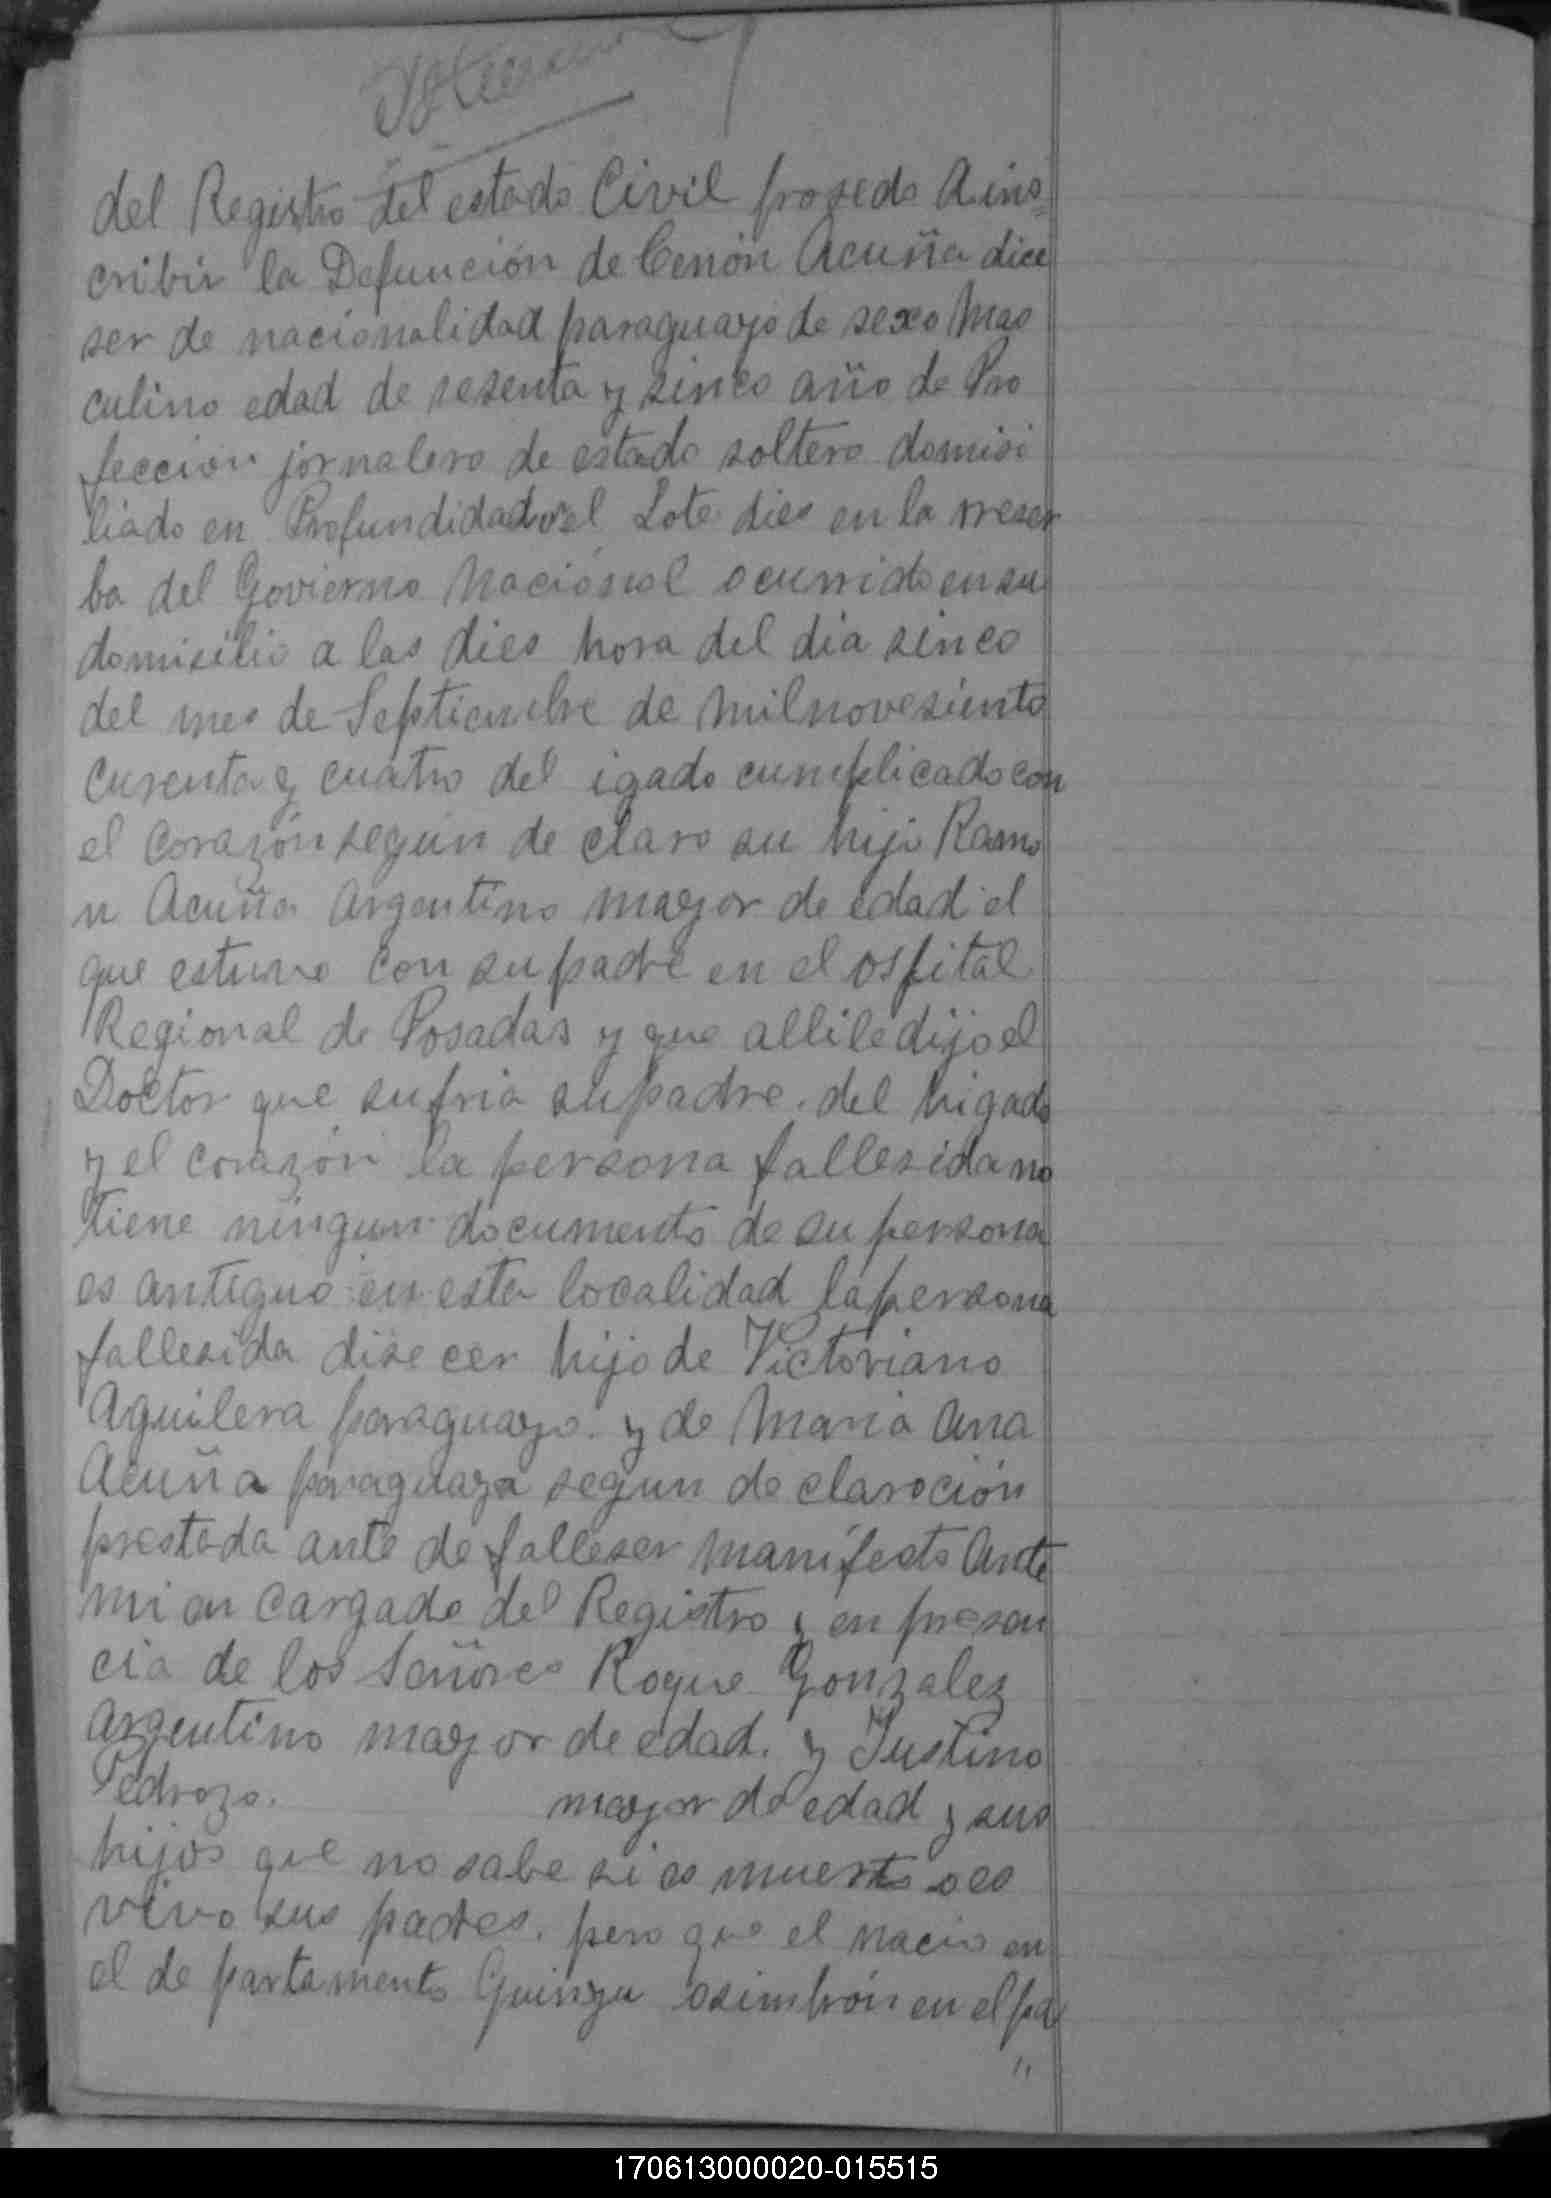 del Registro del estado Civil prosedo A ins=
cribir la Defunción de Cenón Acuña dice
ser de nacionalidad paraguayo de sexo Mas
culino edad de sesenta y sinco año de Pro
feccion jornalero de estado soltero domisi
liado en Profundidad el Lote dies en la rreser
ba del Govierno Nacional ocurrido en su
domisilio a las dies hora del dia sinco
del mes de Septiembre de Milnovesiento
curenta y cuatro del igado cumplicado con
el corazón según de claro su hijo Ramo
n Acuña Argentino mayor de edad el
que estuvo con su padre en el ospital
Regional de Posadas y que alli le dijo el
Doctor que sufria su padre. del higado
y el corazón la persona fallesida no
tiene ningun documento de su persona
es antiguo en esta localidad la persona
fallesida dise cer hijo de Victoriano
Aguilera paraguayo. y de Maria Ana
Acuña paraguaya segun de claración
prestada ante de falleser manifesto Ante
mi en cargado del Registro y en presen
cia de los Señores Roque Gonzalez
Argentino mayor de edad. y Justino
Pedrozo. mayor de edad y sus
hijos que no sabe si es muerto o es
vivo sus padres. pero que el nacio en
el de partamento en el pa
"
170613000020-015515